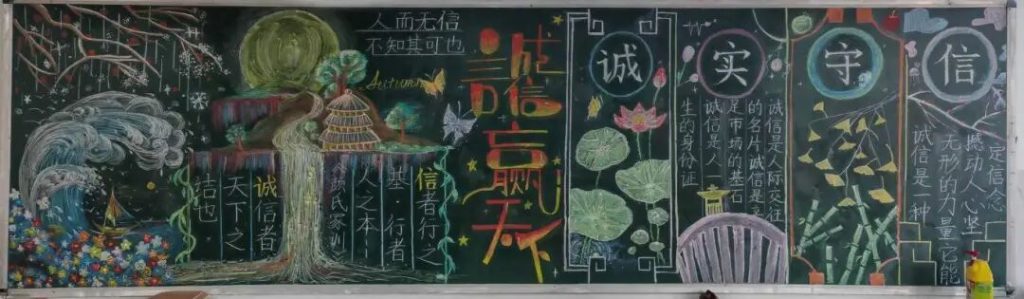 人而无信
不知其可也
Autumn
信者行之
基·行者
人之本
氏家训
诚信者
天下之
结也
誠信赢天下
诚
实
守
信
诚信是人际交往
的名片诚信是
市场的基石
诚信是人
生的身份证
诚信是一种
无形的力量它能
撼动人心坚
定信念